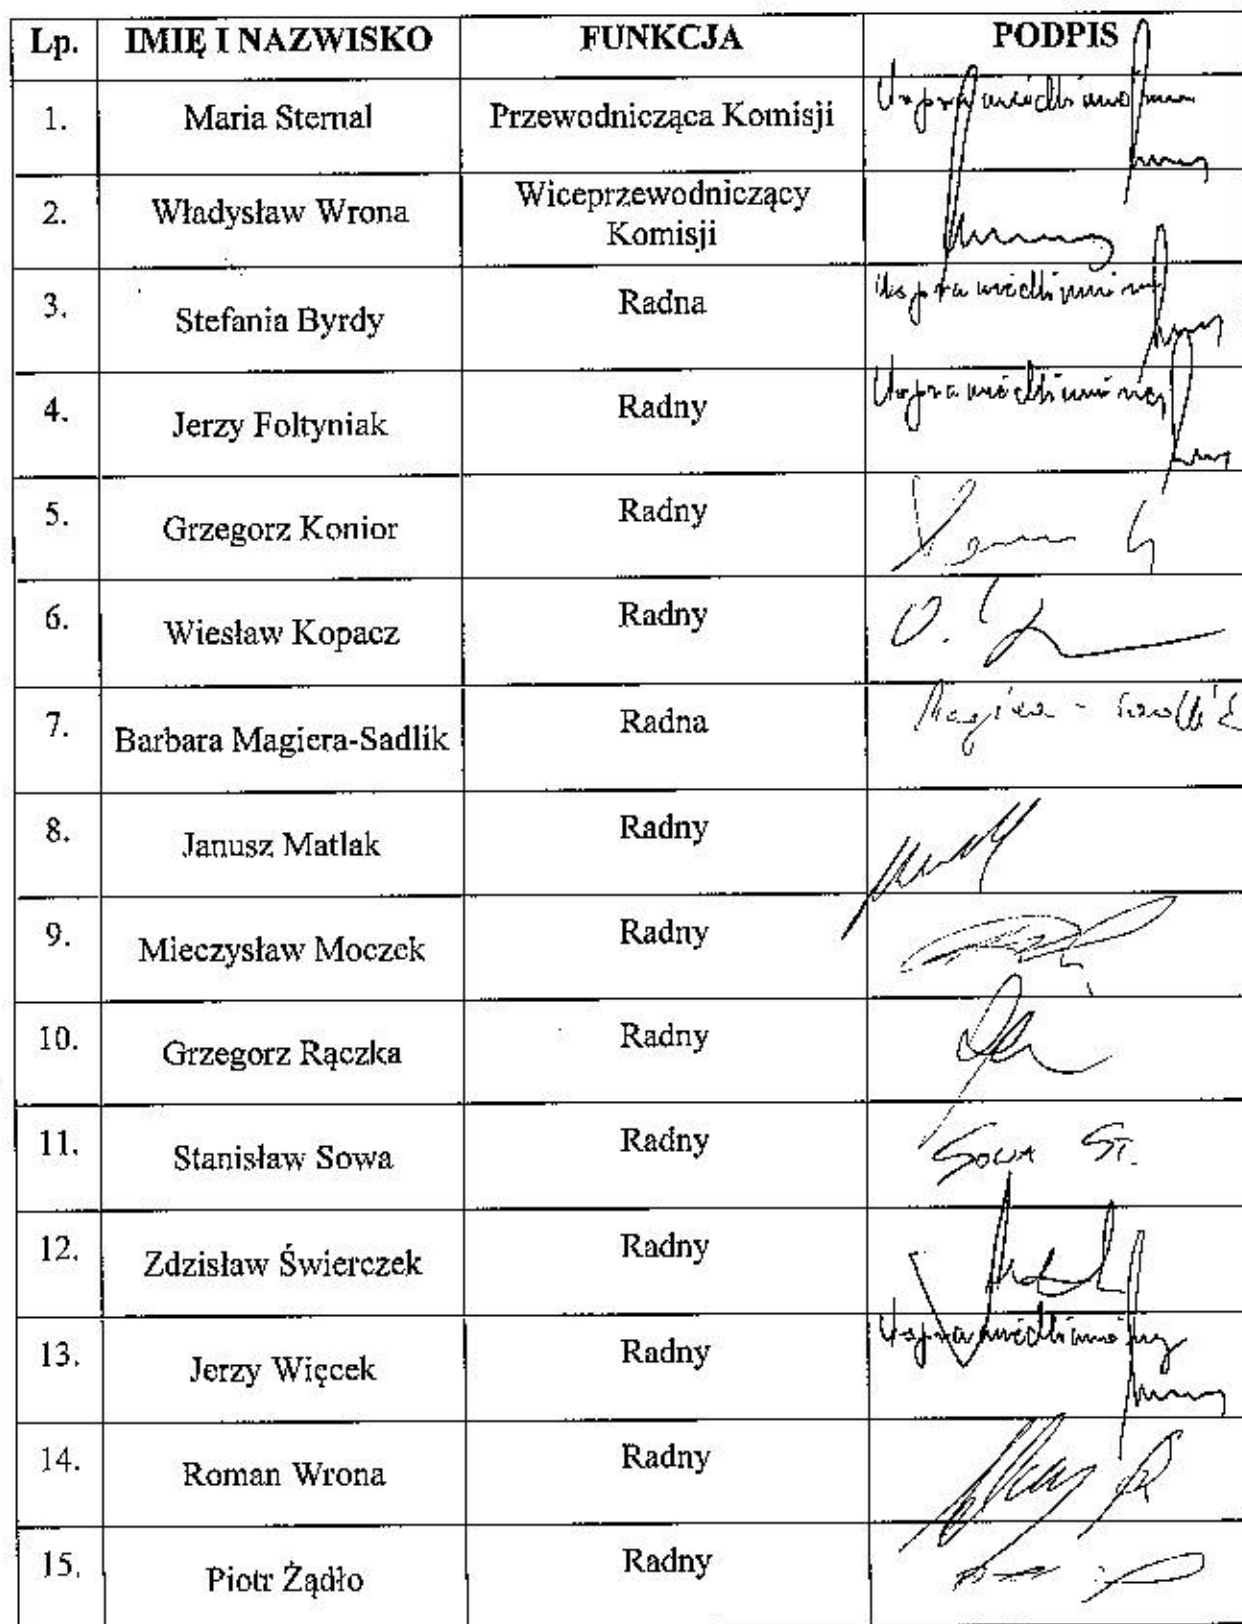 Lp. IMIĘ I NAZWISKO FUNKCJA PODPIS
1. Maria Sternal Przewodnicząca Komisji
2. Władysław Wrona Wiceprzewodniczący
Komisji
3. Stefania Byrdy Radna
4. Jerzy Foltyniak Radny
5. Grzegorz Konior Radny
6. Wiesław Kopacz Radny
7. Barbara Magiera-Sadlik Radna Magiera - Sadlik
8. Janusz Matlak Radny
9. Mieczysław Moczek Radny
10. Grzegorz Rączka Radny
11. Stanisław Sowa Radny SOWA ST.
12. Zdzisław Świerczek Radny
13. Jerzy Więcek Radny
14. Roman Wrona Radny
15. Piotr Żądło Radny